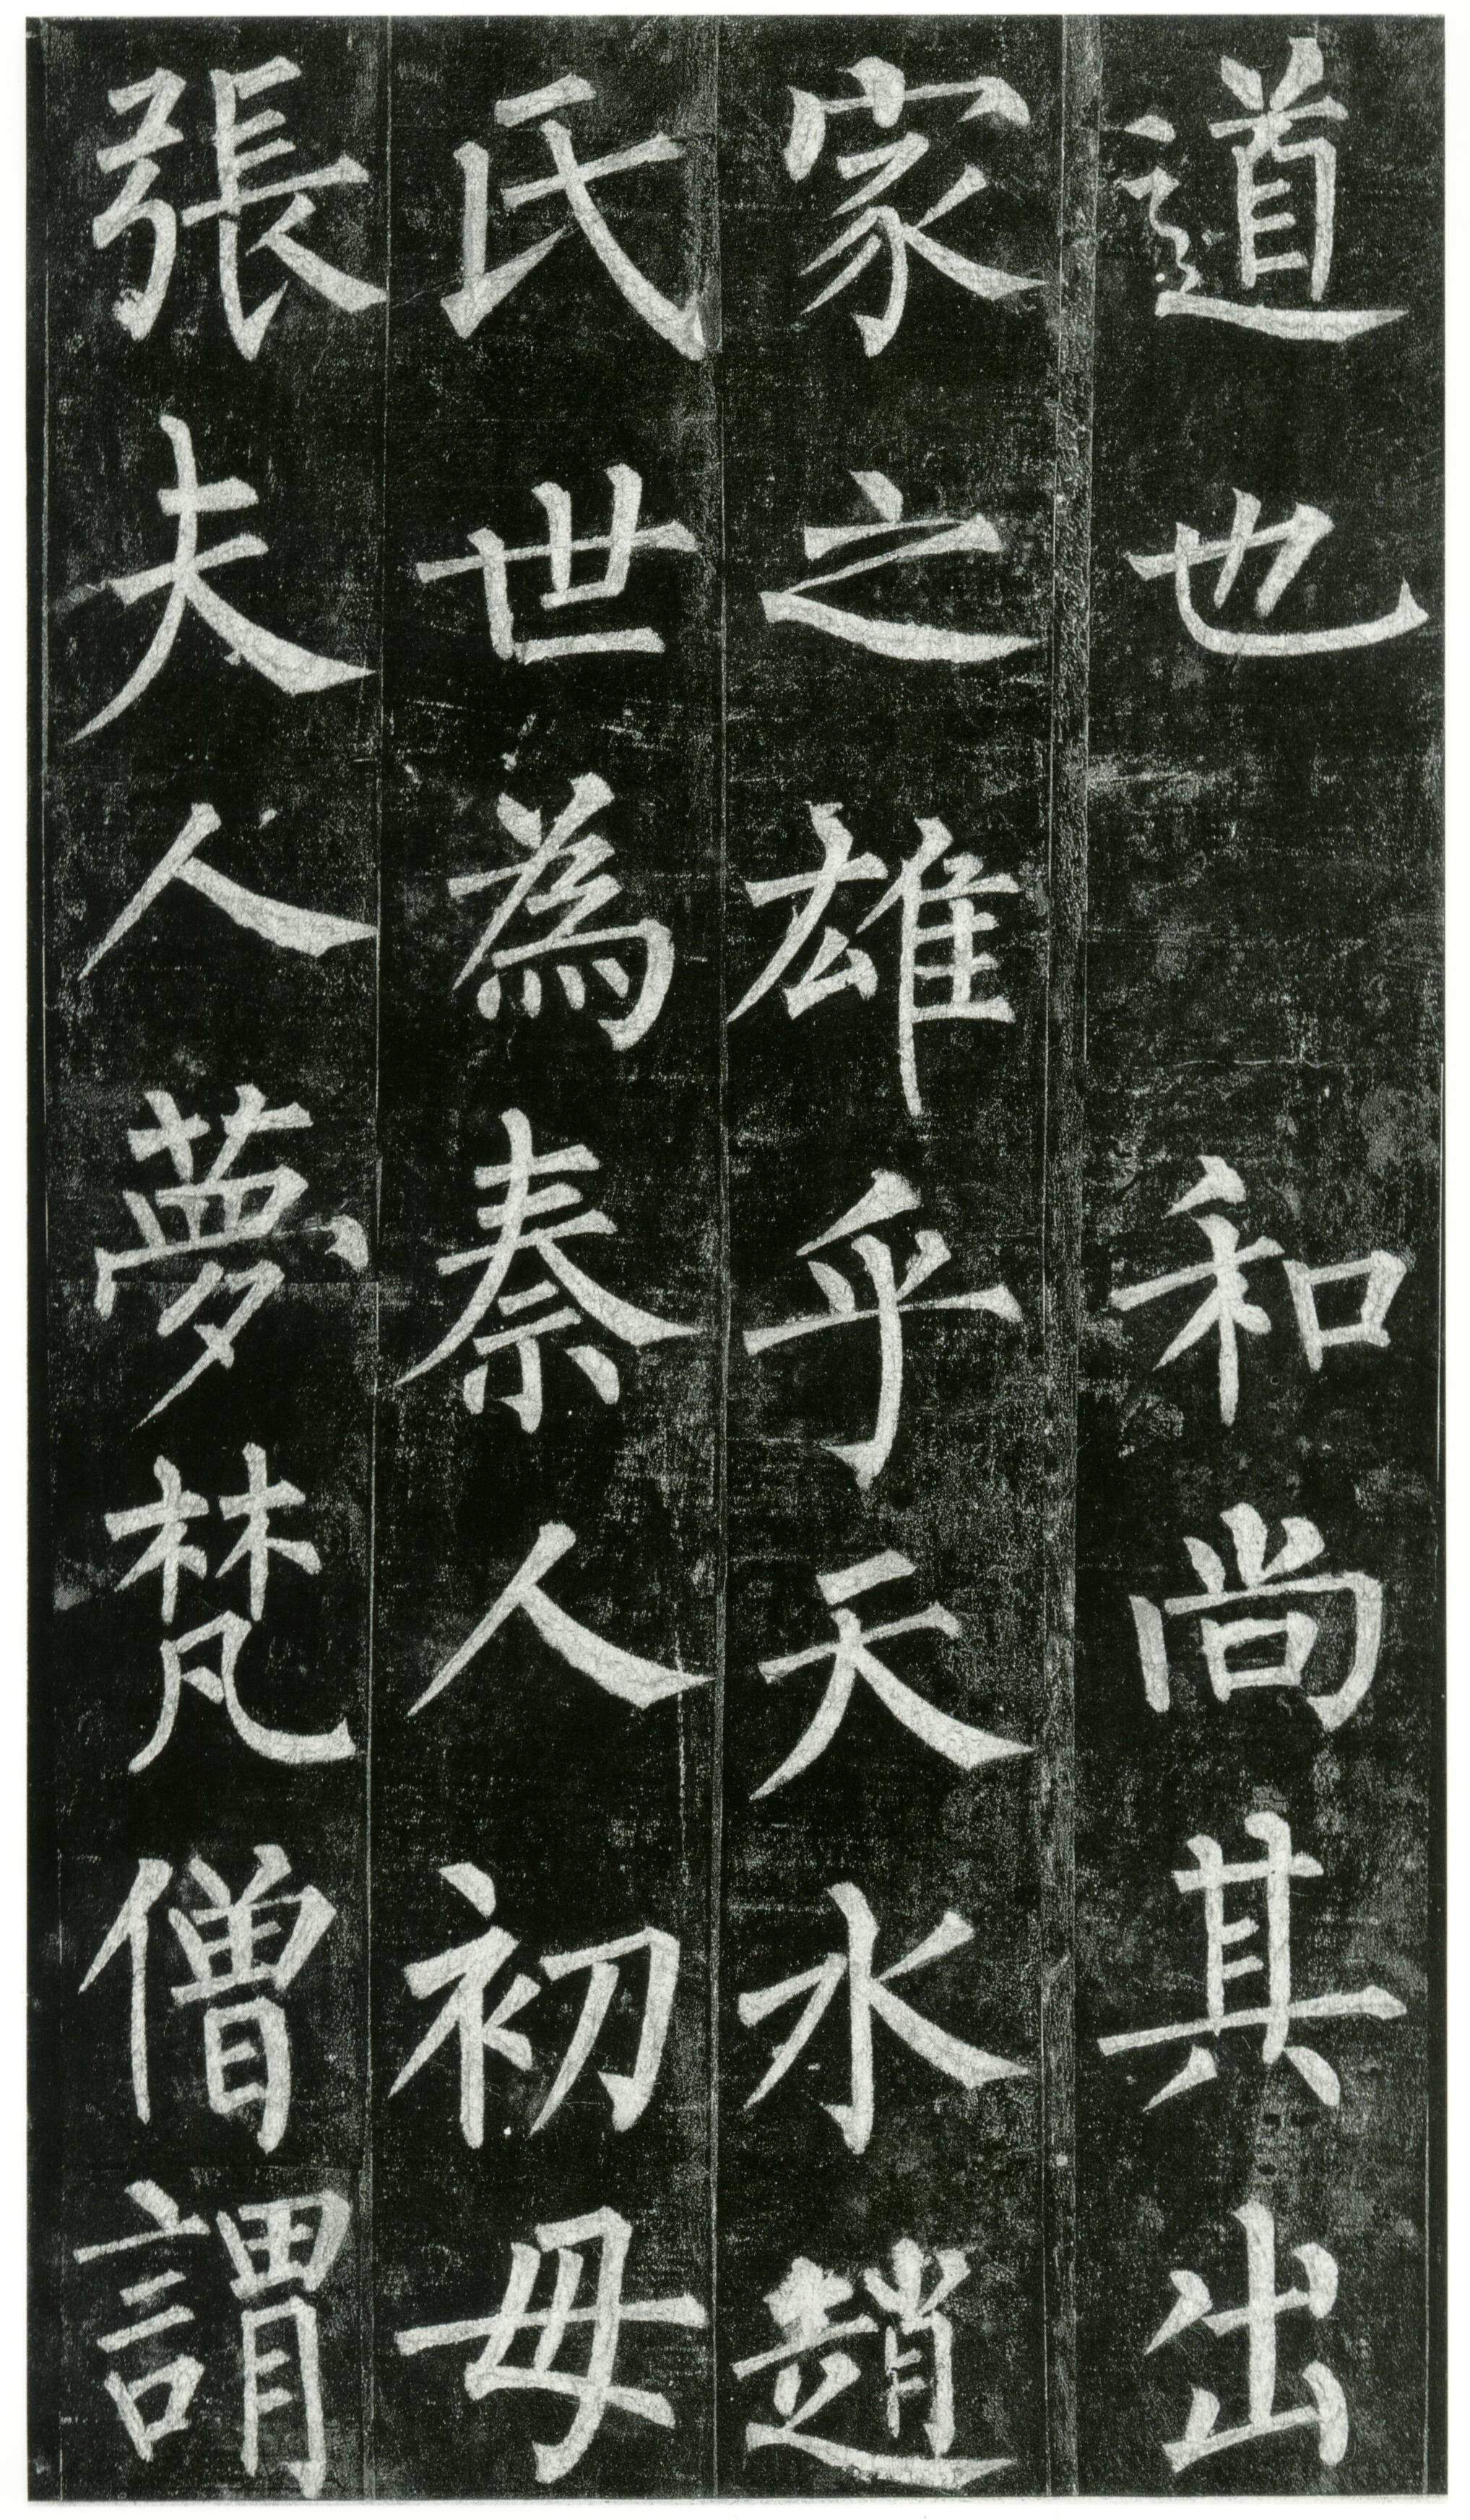 道也和尚其出
家之雄乎天水趙
氏世為秦人初母
張夫人夢梵僧謂